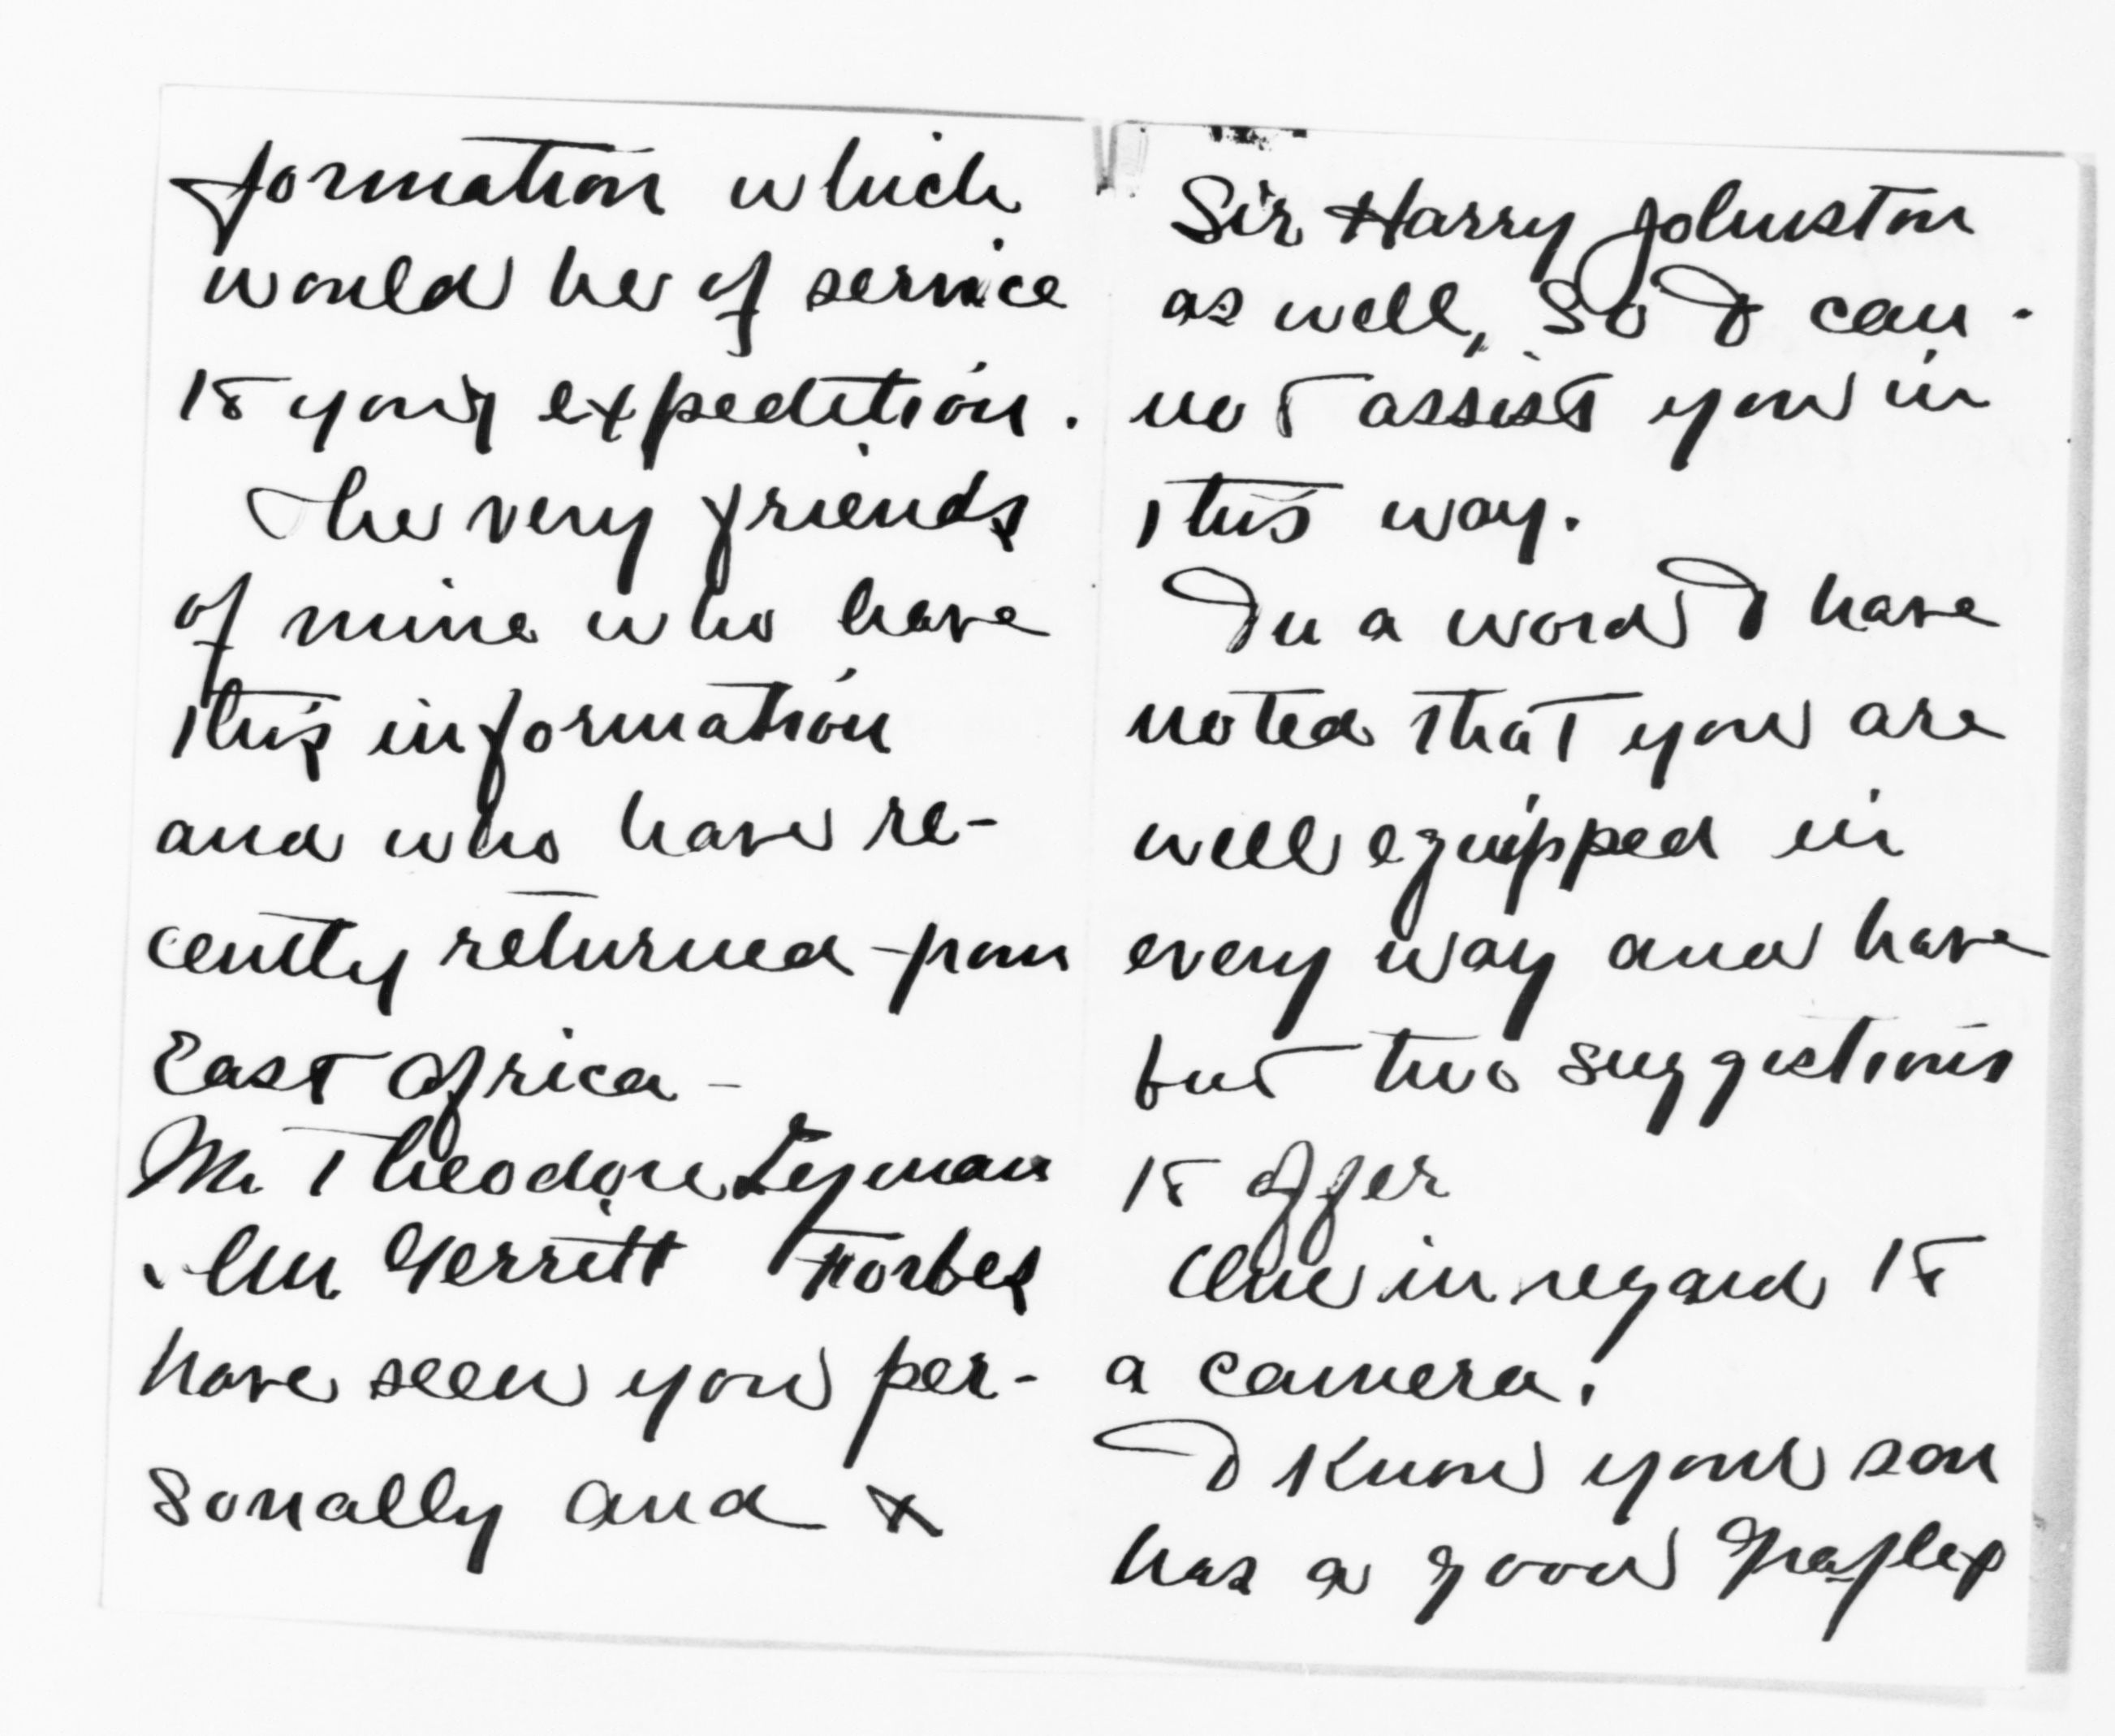 formation which
would be of service
to your expedition.
The very friends
of mine who have
this information
and who have re-
cently returned from
East Africa -
Mr. Theodore Lyman
Mr. Gerritt Forbes
have seen you per-
sonally and &
Sir Harry Johnston
as well, so I can-
not assist you in
this way.
In a word I have
noted that you are
well equipped in
every way and have
but two suggestions
to offer
One in regard to
a camera.
I know your son
has a good Graflex